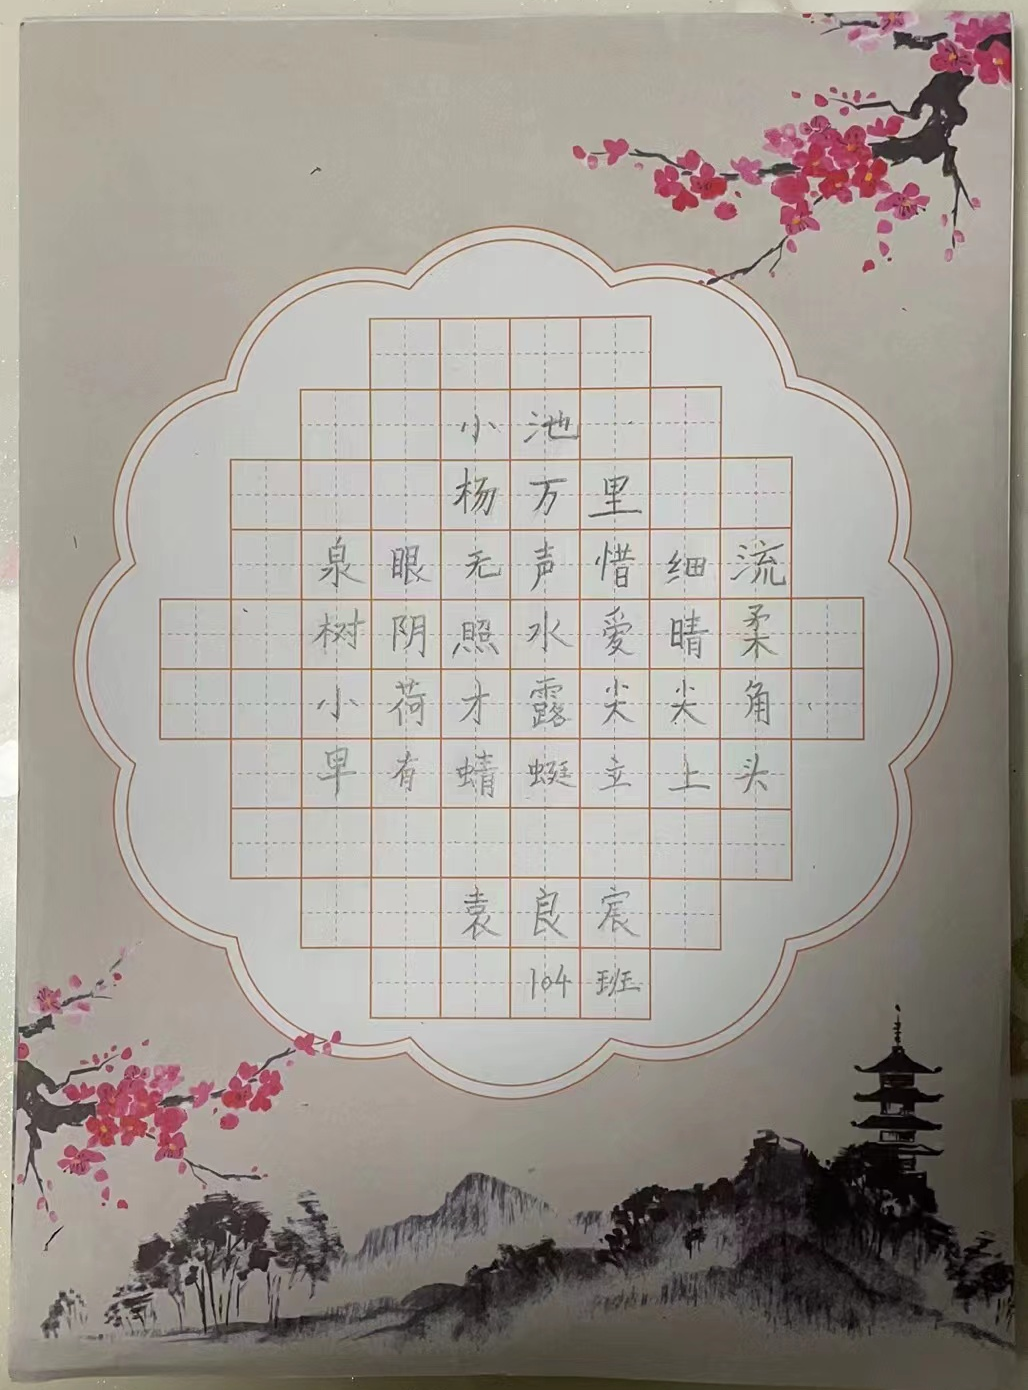 小池
杨万里
泉眼无声惜细流
树阴照水爱晴柔
小荷才露尖尖角
早有蜻蜓立上头
袁良宸
104班